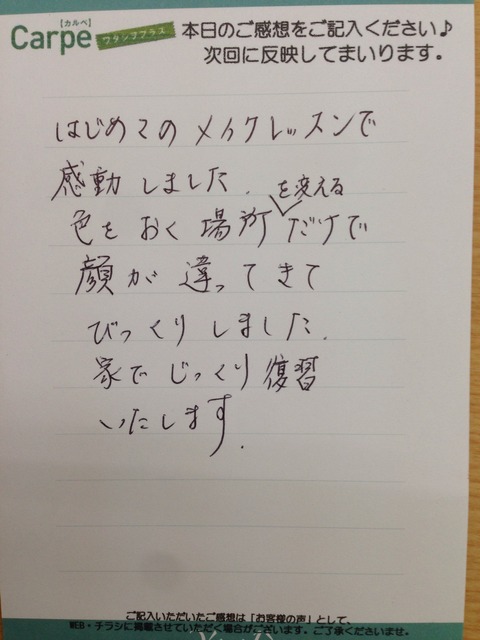 【カルペ】
Carpe ワタシプラス
本日のご感想をご記入ください♪
次回に反映してまいります。
はじめてのメイクレッスンで
感動しました。
を変える
色をおく場所だけで
顔が違ってきて
びっくりしました。
家でじっくり復習
いたします。
ご記入いただいたご感想は「お客様の声」として、
WEB・チラシに掲載させていただく場合がございます。ご了承くださいませ。